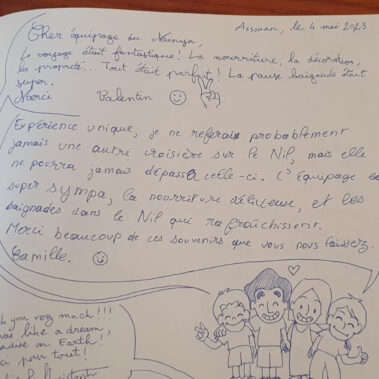 Assouan, le 4 mai 2023
Cher équipage du
Le voyage était fantastique! La nourriture, la décoration,
la propreté... Tout était parfait! La pause baignade était
super.
Merci Valentin
Expérience unique, je ne referais probablement
jamais une autre croisière sur le Nil, mais elle
ne pourra jamais dépasser celle-ci. L'équipage
super sympa, la nourriture délicieuse, et les
baignades dans le Nil qui rafraîchissent.
Merci beaucoup de ces souvenirs que vous nous laissez.
Camille.
you very much!!!
like a dream,
on Earth!
pour tout!